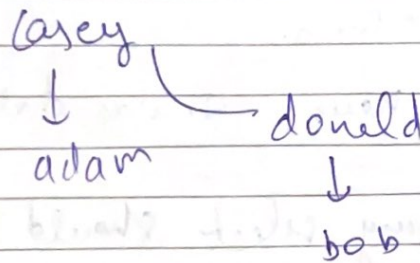 Casey
adam
donald
bob